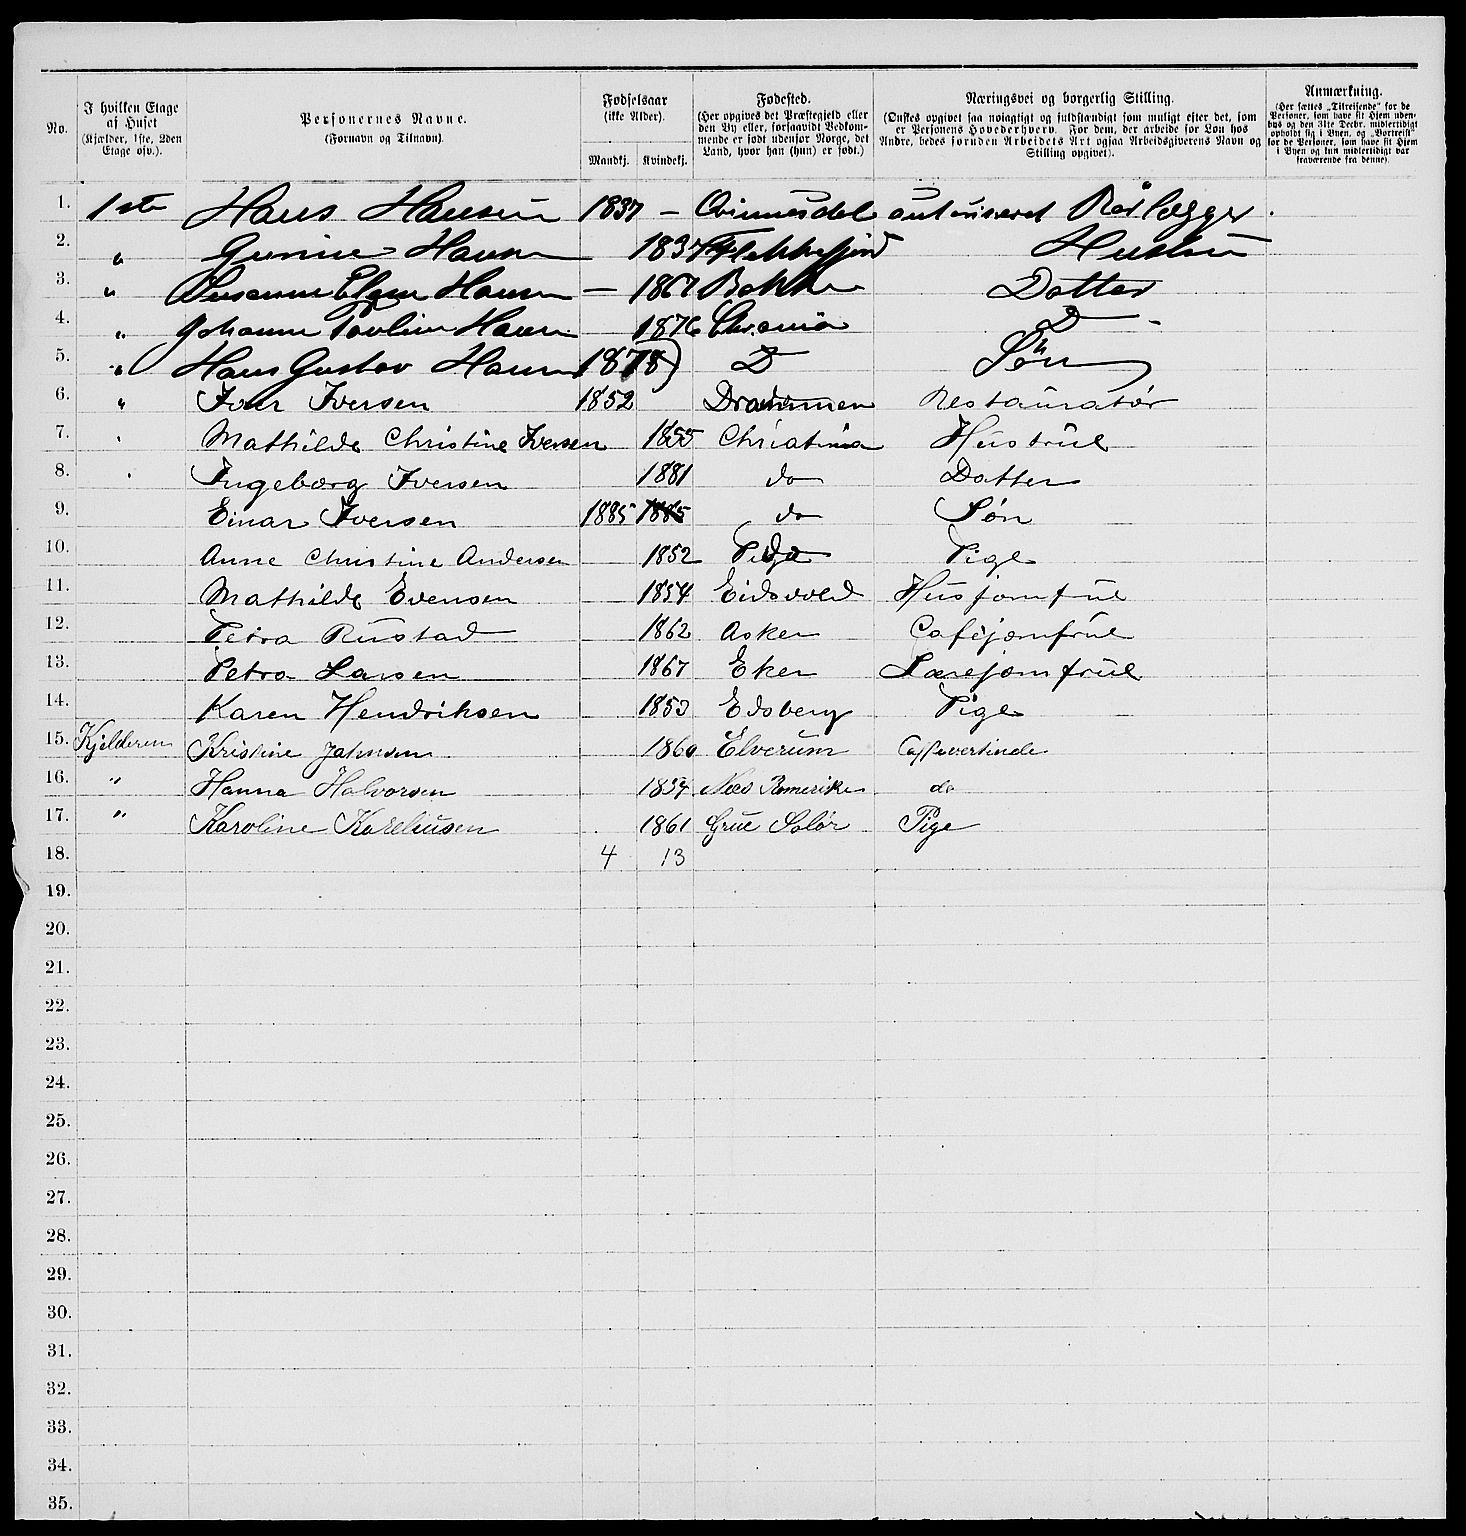 No.
I hvilken Etage af Huset (Kjælder, 1ste, 2den Etage osv.).
Personernes Navne. (Fornavn og Tilnavn).
Fødselsaar (ikke Alder). Mandkj. Kvindekj.
Fødested. (Her opgives det Præstegjeld eller den By eller, forsaavidt Vedkommende er født udenfor Norge, det Land, hvor han (hun) er født.)
Næringsvei og borgerlig Stilling. (Ønskes opgivet saa nøiagtigt og fuldstændigt som muligt efter det, som er Personens Hovederhverv. For dem, der arbeide for Løn hos Andre, bedes foruden Arbeidets Art ogsaa Arbeidsgiverens Navn og Stilling opgivet).
Anmærkning. (Her sættes „Tilreisende“ for de Personer, som have sit Hjem udenbys og den 31te Decbr. midlertidigt opholdt sig i Byen, og „Bortreist“ for de Personer, som have sit Hjem i Byen og kun midlertidigt var fraværende fra denne).
1. 1ste Hans Hansen 1837 — Qvinnesdal autoriseret Rørlægger
2. " Gunine Hansen 1837 Flekkefjord Hustru
3. " Susanne Hansen — 1867 Bakke Datter
4. " Johanne Hansen 1876 Chr.ania D
5. " Hans Gustav Hansen 1878 D Søn
6. " Iver Iversen 1852 Drammen Restauratør
7. " Mathilde Christine Iversen 1855 Christania Hustrue
8. " Ingeborg Iversen 1881 do Datter
9. Einar Iversen 1885 1885 do Søn
10. Anne Christine Andersen 1852 do Pige
11. Mathilde Evensen 1854 Eidsvold Husjomfrue
12. Petra Rustad 1862 Asker Caféjomfrue
13. Petra Larsen 1867 Eker Lærejomfrue
14. Karen Hendriksen 1853 Edsberg Pige
15. Kjelderen Kristine Johnsen 1860 Elverum
16. " Hanna Halvorsen 1857 Næs Romerike do
17. " Karoline Korneliusen 1861 Grue Solør Pige
18. 4 13
19.
20.
21.
22.
23.
24.
25.
26.
27.
28.
29.
30.
31.
32.
33.
34.
35.